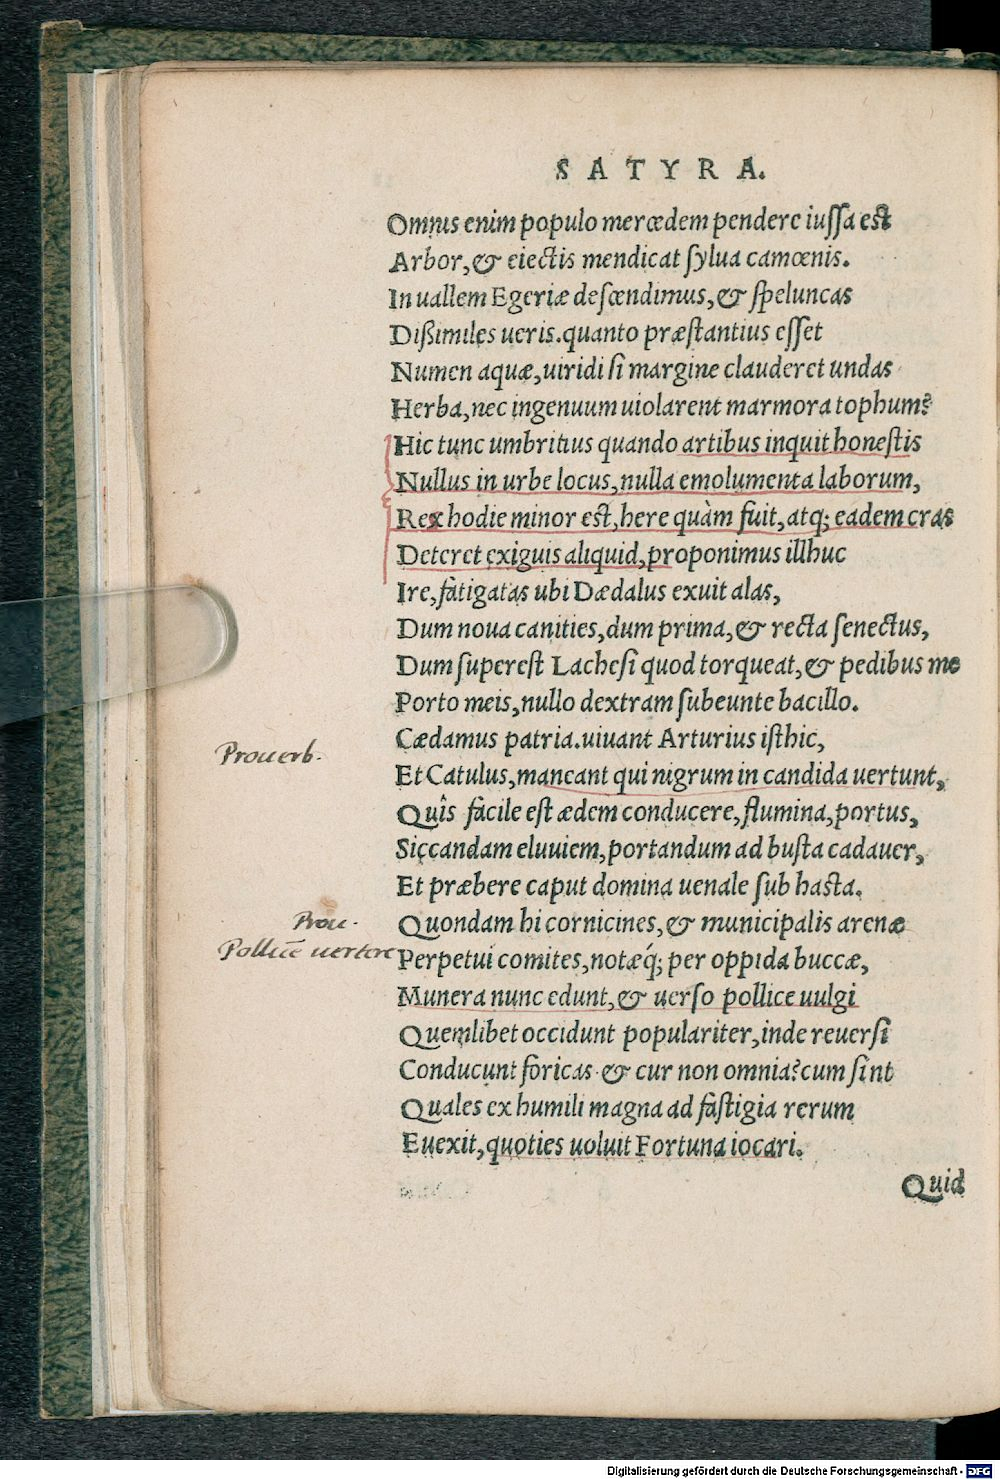 SATYRA.
Omnis enim populo mercedem pendere iussa est
Arbor, & eiectis mendicat sylua camœnis.
In uallem Egeriæ descendimus, & speluncas
Dißimiles ueris. quanto præstantius esset
Numen aquæ, uiridi si margine clauderet undas
Herba, nec ingenuum uiolarent marmora tophum?
Hic tunc umbritius quando artibus inquit honestis
Nullus in urbe locus, nulla emolumenta laborum,
Res hodie minor est, here quàm fuit, atq; eadem cras
Deteret exiguis aliquid, proponimus illhuc
Ire, fatigatas ubi Dædalus exuit alas,
Dum noua canities, dum prima, & recta senectus,
Dum superest Lachesi quod torqueat, & pedibus me
Porto meis, nullo dextram subeunte bacillo.
Cædamus patria. uiuant Arturius isthic,
Prouerb.
Et Catulus, maneant qui nigrum in candida uertunt,
Quîs facile est ædem conducere, flumina, portus,
Siccandam eluuiem, portandum ad busta cadauer,
Et præbere caput domina uenale sub hasta.
Prou.
Quondam hi cornicines, & municipalis arenæ
Pollicē uertere
Perpetui comites, notæq́; per oppida buccæ,
Munera nunc edunt, & uerso pollice uulgi
Quemlibet occidunt populariter, inde reuersi
Conducunt foricas. & cur non omnia? cum sint
Quales ex humili magna ad fastigia rerum
Euexit, quoties uoluit Fortuna iocari.
Quid
Digitalisierung gefördert durch die Deutsche Forschungsgemeinschaft - DFG